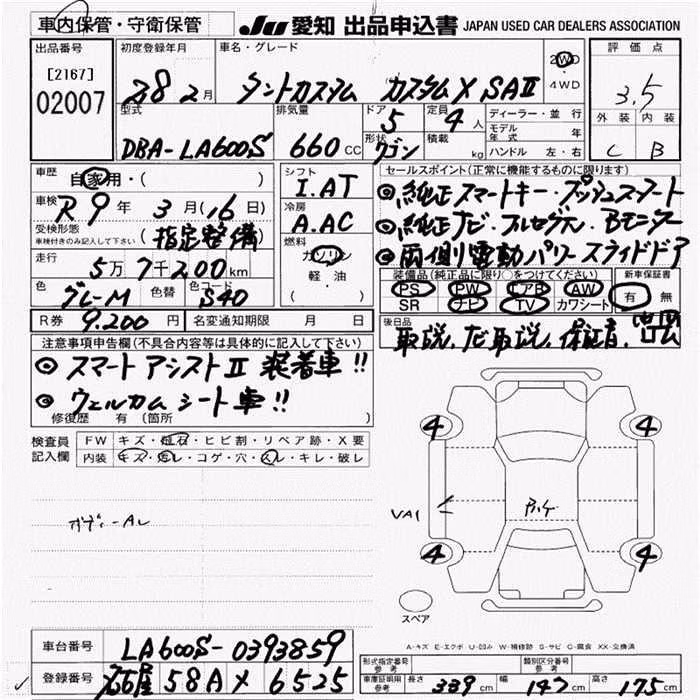 車内保管・守衛保管 JU 愛知 出品申込書 JAPAN USED CAR DEALERS ASSOCIATION
出品番号 初度登録年月 車名・グレード 2WD・4WD 評価点
[2167] 28 2月 タントカスタム カスタムX SAⅡ 3.5
02007 型式 排気量 ドア 5 定員 4人 ディーラー・並行 外装 内装
DBA-LA600S 660cc 形状 ワゴン 積載 kg モデル年式 年 C B
ハンドル 左・右
車歴 自家用・( ) シフト I.AT セールスポイント(正常に機能するものに限ります)
車検 R9年 3月(16日) 冷房 A.AC ◎純正スマートキー・プッシュスタート
受検形態 車検付きのみ記入して下さい (指定整備) ◎純正ナビ・フルセグTV・Bモニター
走行 5万7千200km 燃料 ガソリン 軽・油 ( ) ◎両側電動パワースライドドア
色 グレーM 色替 色コード S40 装備品(純正品に限り○をつけてください) 新車保証書
PS PW エアB AW 有 無
SR ナビ TV カワシート
R券 9.200円 名変通知期限 月 日 後日品 取説、ナビ取説、保証書、
注意事項申告欄(不具合内容等は具体的に記入して下さい)
◎スマートアシストⅡ装着車!!
◎ウェルカムシート車!!
修復歴 有(箇所 )
検査員記入欄 FW キズ・飛石・ヒビ割・リペア跡・X要
内装 キズ・汚レ・コゲ・穴・スレ・キレ・破レ
4 4
VA1
ボディーAL
4 4
スペア
A-キズ E-エクボ U-凹み W-補修跡 S-サビ C-腐食 XX-交換済
車台番号 LA600S-0393859 形式指定番号 参考 類別区分番号 参考
登録番号 名古屋 58A X 6525 車庫証明用 参考 長さ 339cm 幅 147cm 高さ 175cm